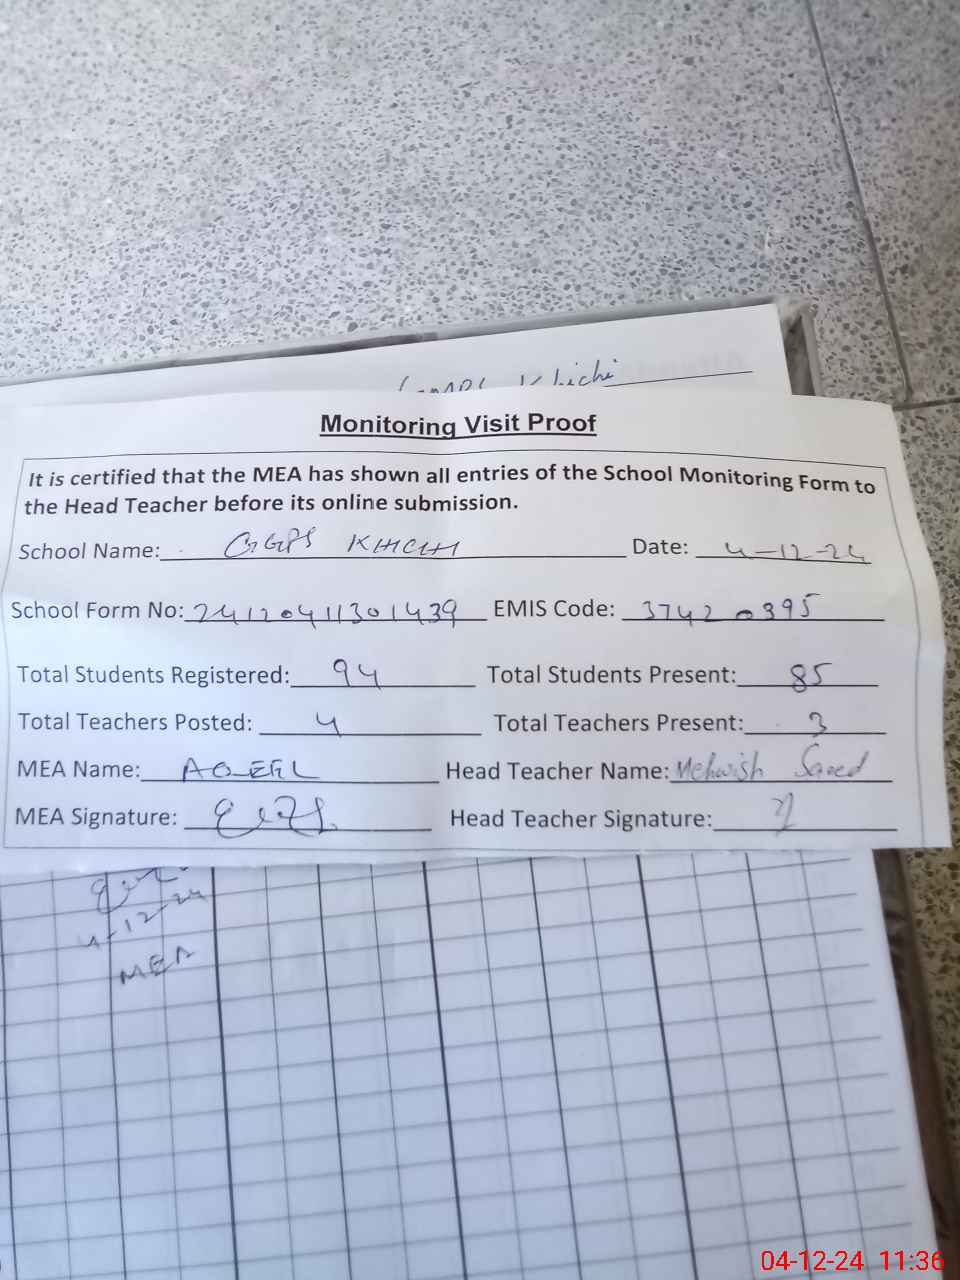 Khichi
Monitoring Visit Proof
It is certified that the MEA has shown all entries of the School Monitoring Form to
the Head Teacher before its online submission.
School Name: GGPS KHICHI Date: 4-12-24
School Form No: 24120411301439 EMIS Code: 37420395
Total Students Registered: 94 Total Students Present: 85
Total Teachers Posted: 4 Total Teachers Present: 3
MEA Name: AQEEL Head Teacher Name: Mehwish Saeed
MEA Signature: Head Teacher Signature:
4-12-24
MEA
04-12-24 11:36